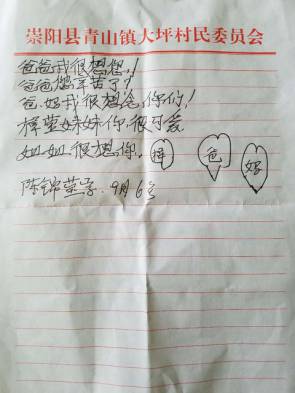 崇阳县青山镇大坪村民委员会
爸爸我很想您!
爸爸您辛苦了!
爸妈我很想念你们!
梓莹妹妹你很可爱
姐姐很想你!
梓 爸 妈
陈锦莹写 9月6号